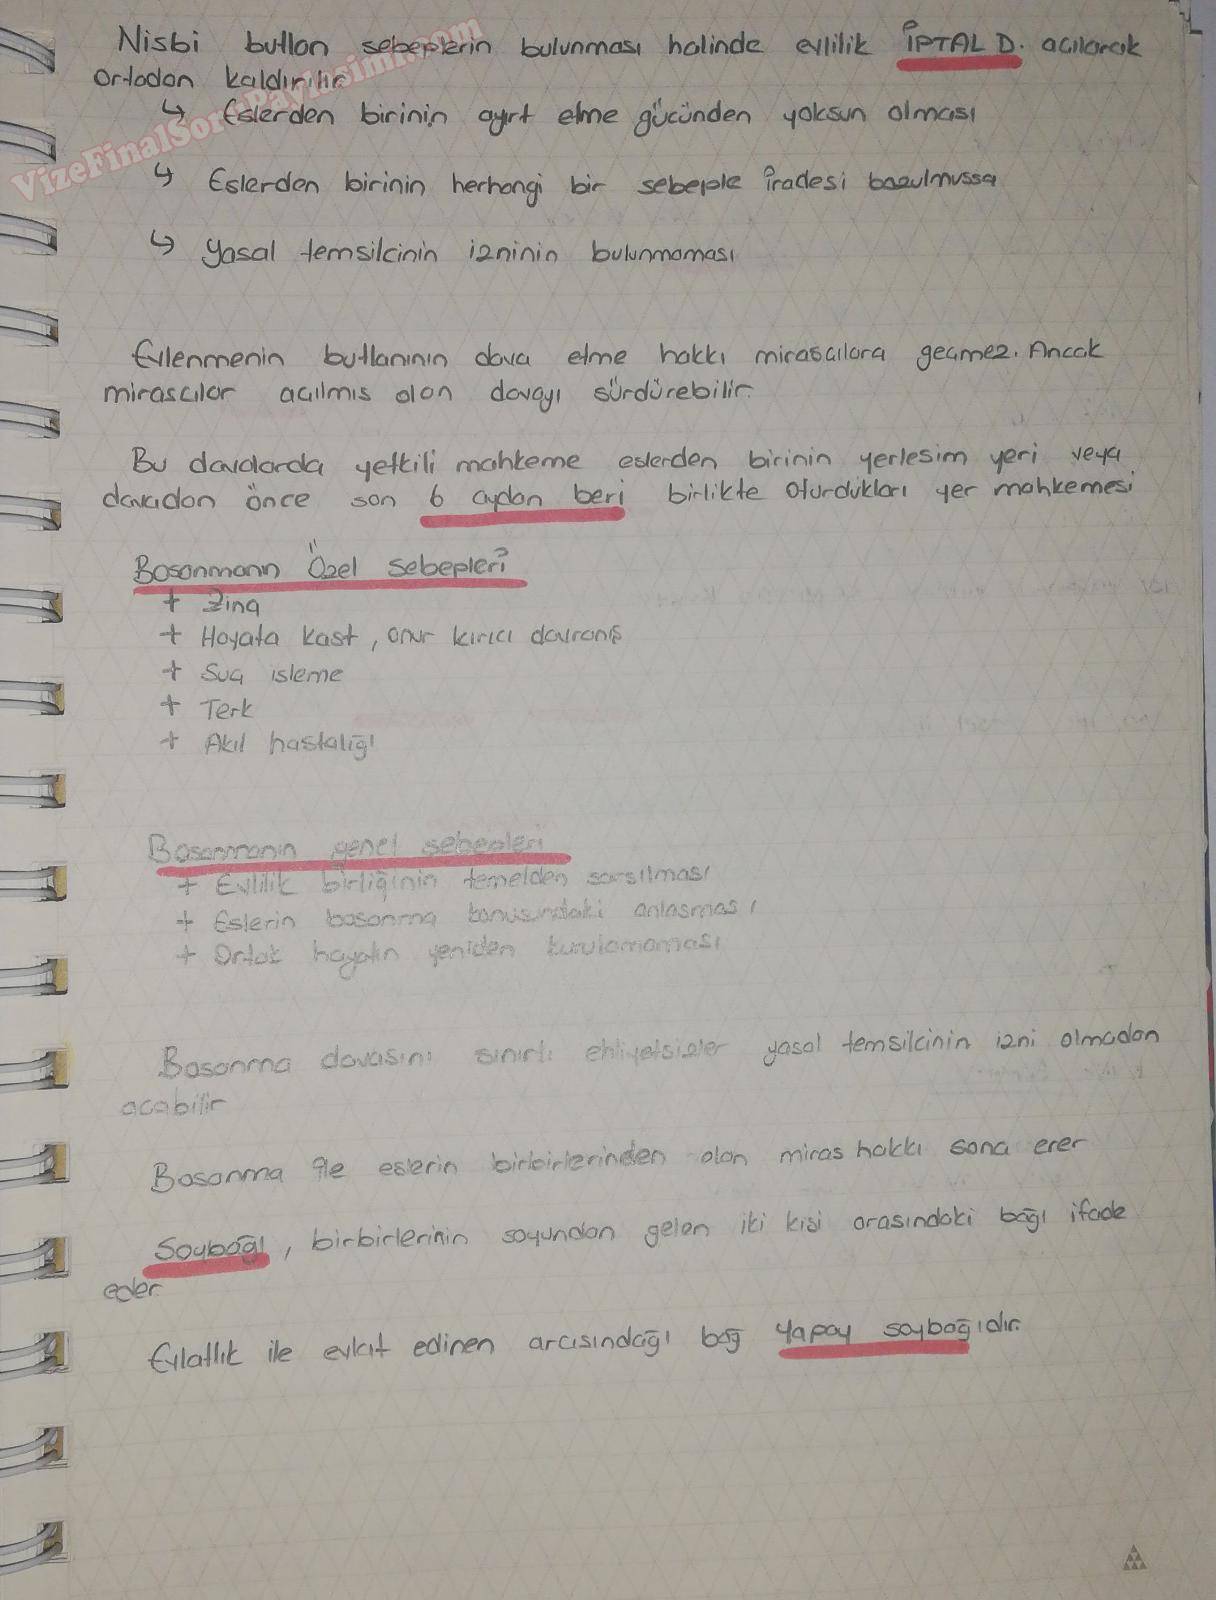 Nisbi butlan sebeplerin bulunması halinde evlilik İPTAL D. açılarak
ortadan kaldırılır
↳ Eslerden birinin ayırt etme gücünden yoksun olması
↳ Eslerden birinin herhangi bir sebeple iradesi bozulmussa
↳ Yasal temsilcinin izninin bulunmaması
Evlenmenin butlanının dava etme hakkı mirascılara geçmez. Ancak
mirascılar açılmıs olan davayı sürdürebilir.
Bu davalarda yetkili mahkeme eslerden birinin yerlesim yeri veya
davadan önce son 6 aydan beri birlikte oturdukları yer mahkemesi
Bosanmanın Özel sebepleri
+ Zina
+ Hayata kast, onur kırıcı davranış
+ Suç isleme
+ Terk
+ Akıl hastalığı
Bosanmanın genel sebepleri
+ Evlilik birliğinin temelden sarsılması
+ Eslerin bosanma konusundaki anlasması
+ Ortak hayatın yeniden kurulamaması
Bosanma davasını sınırlı ehliyetsizler yasal temsilcinin izni olmadan
acabilir
Bosanma ile eslerin birbirlerinden olan miras hakkı sona erer
Soybağı, birbirlerinin soyundan gelen iki kisi arasındaki bağı ifade
eder.
Evlatlık ile evlat edinen arasındağı bağ Yapay soybağıdır.
VizeFinalSoruPaylasimi.com